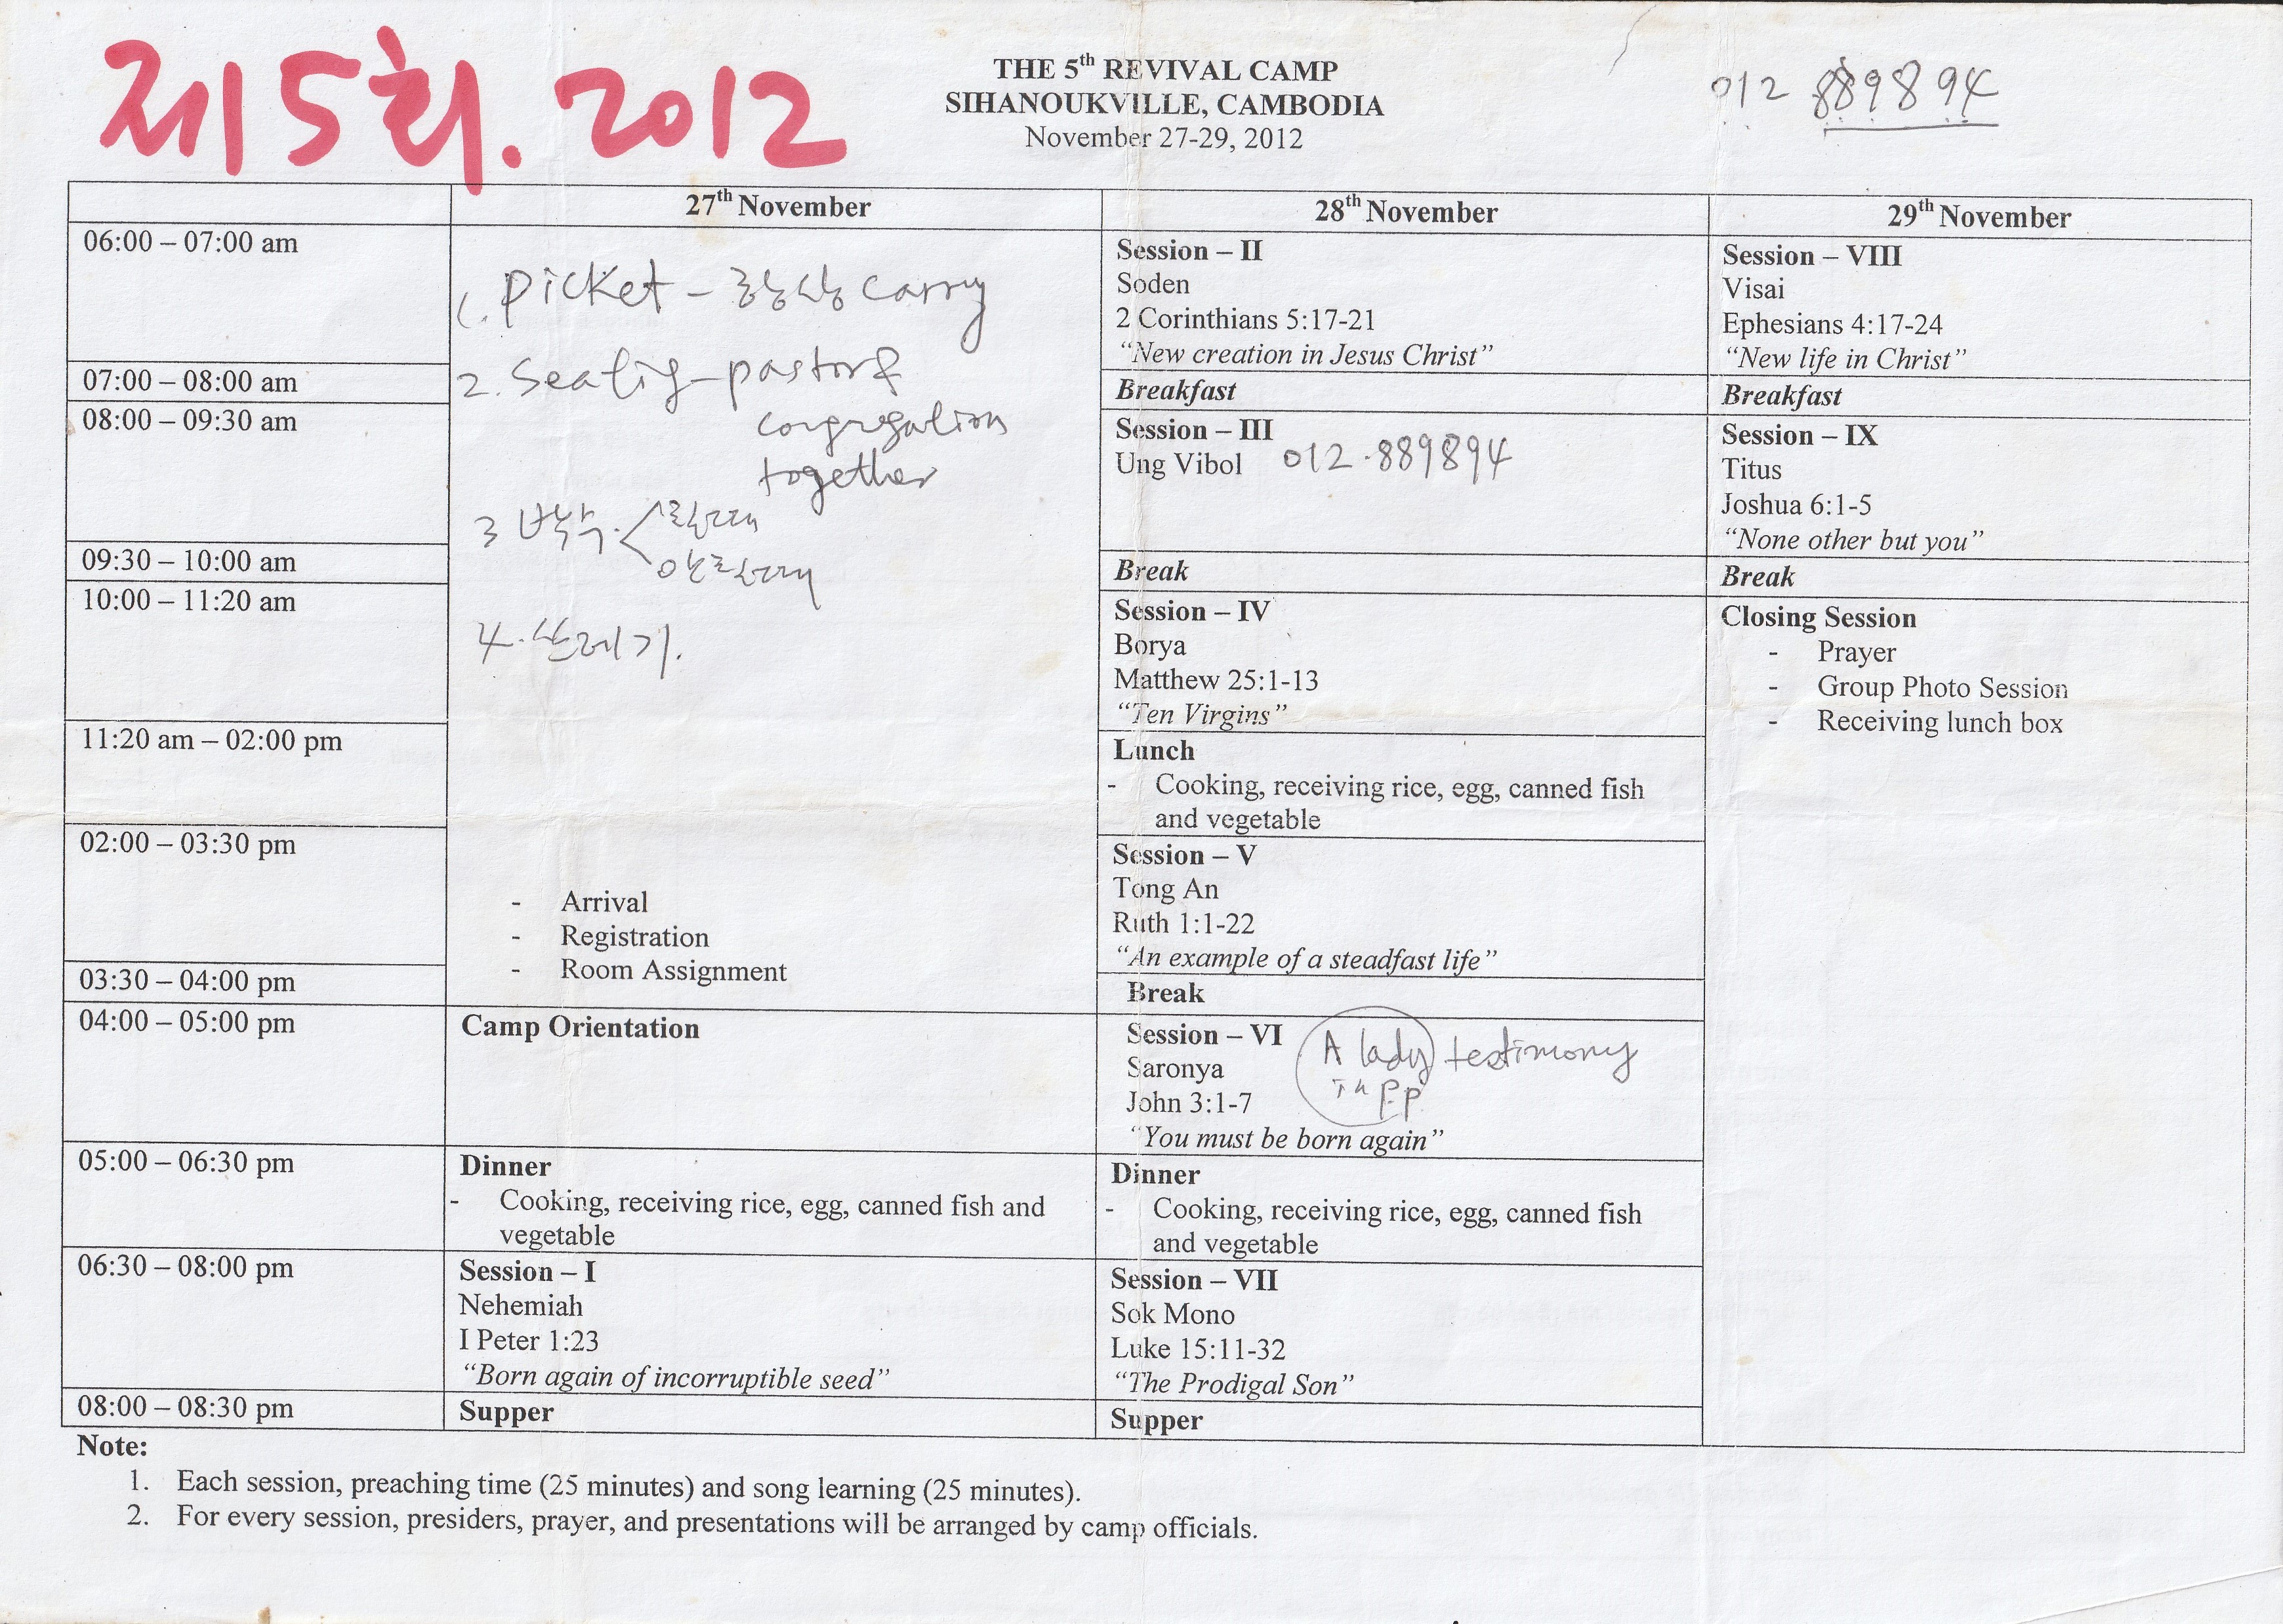 제15회. 2012
THE 5th REVIVAL CAMP
SIHANOUKVILLE, CAMBODIA
November 27-29, 2012
012 889894
27th November
28th November
29th November
06:00 – 07:00 am
1. Picket - 항상 carry
2. Seatig - pastor &
congregation
together
3 박수.
4. 쓰레기.
Session – II
Soden
2 Corinthians 5:17-21
“New creation in Jesus Christ”
Session – VIII
Visai
Ephesians 4:17-24
“New life in Christ”
07:00 – 08:00 am
Breakfast
Breakfast
08:00 – 09:30 am
Session – III
Ung Vibol 012-889894
Session – IX
Titus
Joshua 6:1-5
“None other but you”
09:30 – 10:00 am
Break
Break
10:00 – 11:20 am
Session – IV
Borya
Matthew 25:1-13
“Ten Virgins”
Closing Session
- Prayer
- Group Photo Session
- Receiving lunch box
11:20 am – 02:00 pm
Lunch
- Cooking, receiving rice, egg, canned fish
and vegetable
02:00 – 03:30 pm
- Arrival
- Registration
- Room Assignment
Session – V
Tong An
Ruth 1:1-22
“An example of a steadfast life”
03:30 – 04:00 pm
Break
04:00 – 05:00 pm
Camp Orientation
Session – VI
Saronya
John 3:1-7
“You must be born again”
A lady testimony
in P.P
05:00 – 06:30 pm
Dinner
- Cooking, receiving rice, egg, canned fish and
vegetable
Dinner
- Cooking, receiving rice, egg, canned fish
and vegetable
06:30 – 08:00 pm
Session – I
Nehemiah
I Peter 1:23
“Born again of incorruptible seed”
Session – VII
Sok Mono
Luke 15:11-32
“The Prodigal Son”
08:00 – 08:30 pm
Supper
Supper
Note:
1. Each session, preaching time (25 minutes) and song learning (25 minutes).
2. For every session, presiders, prayer, and presentations will be arranged by camp officials.